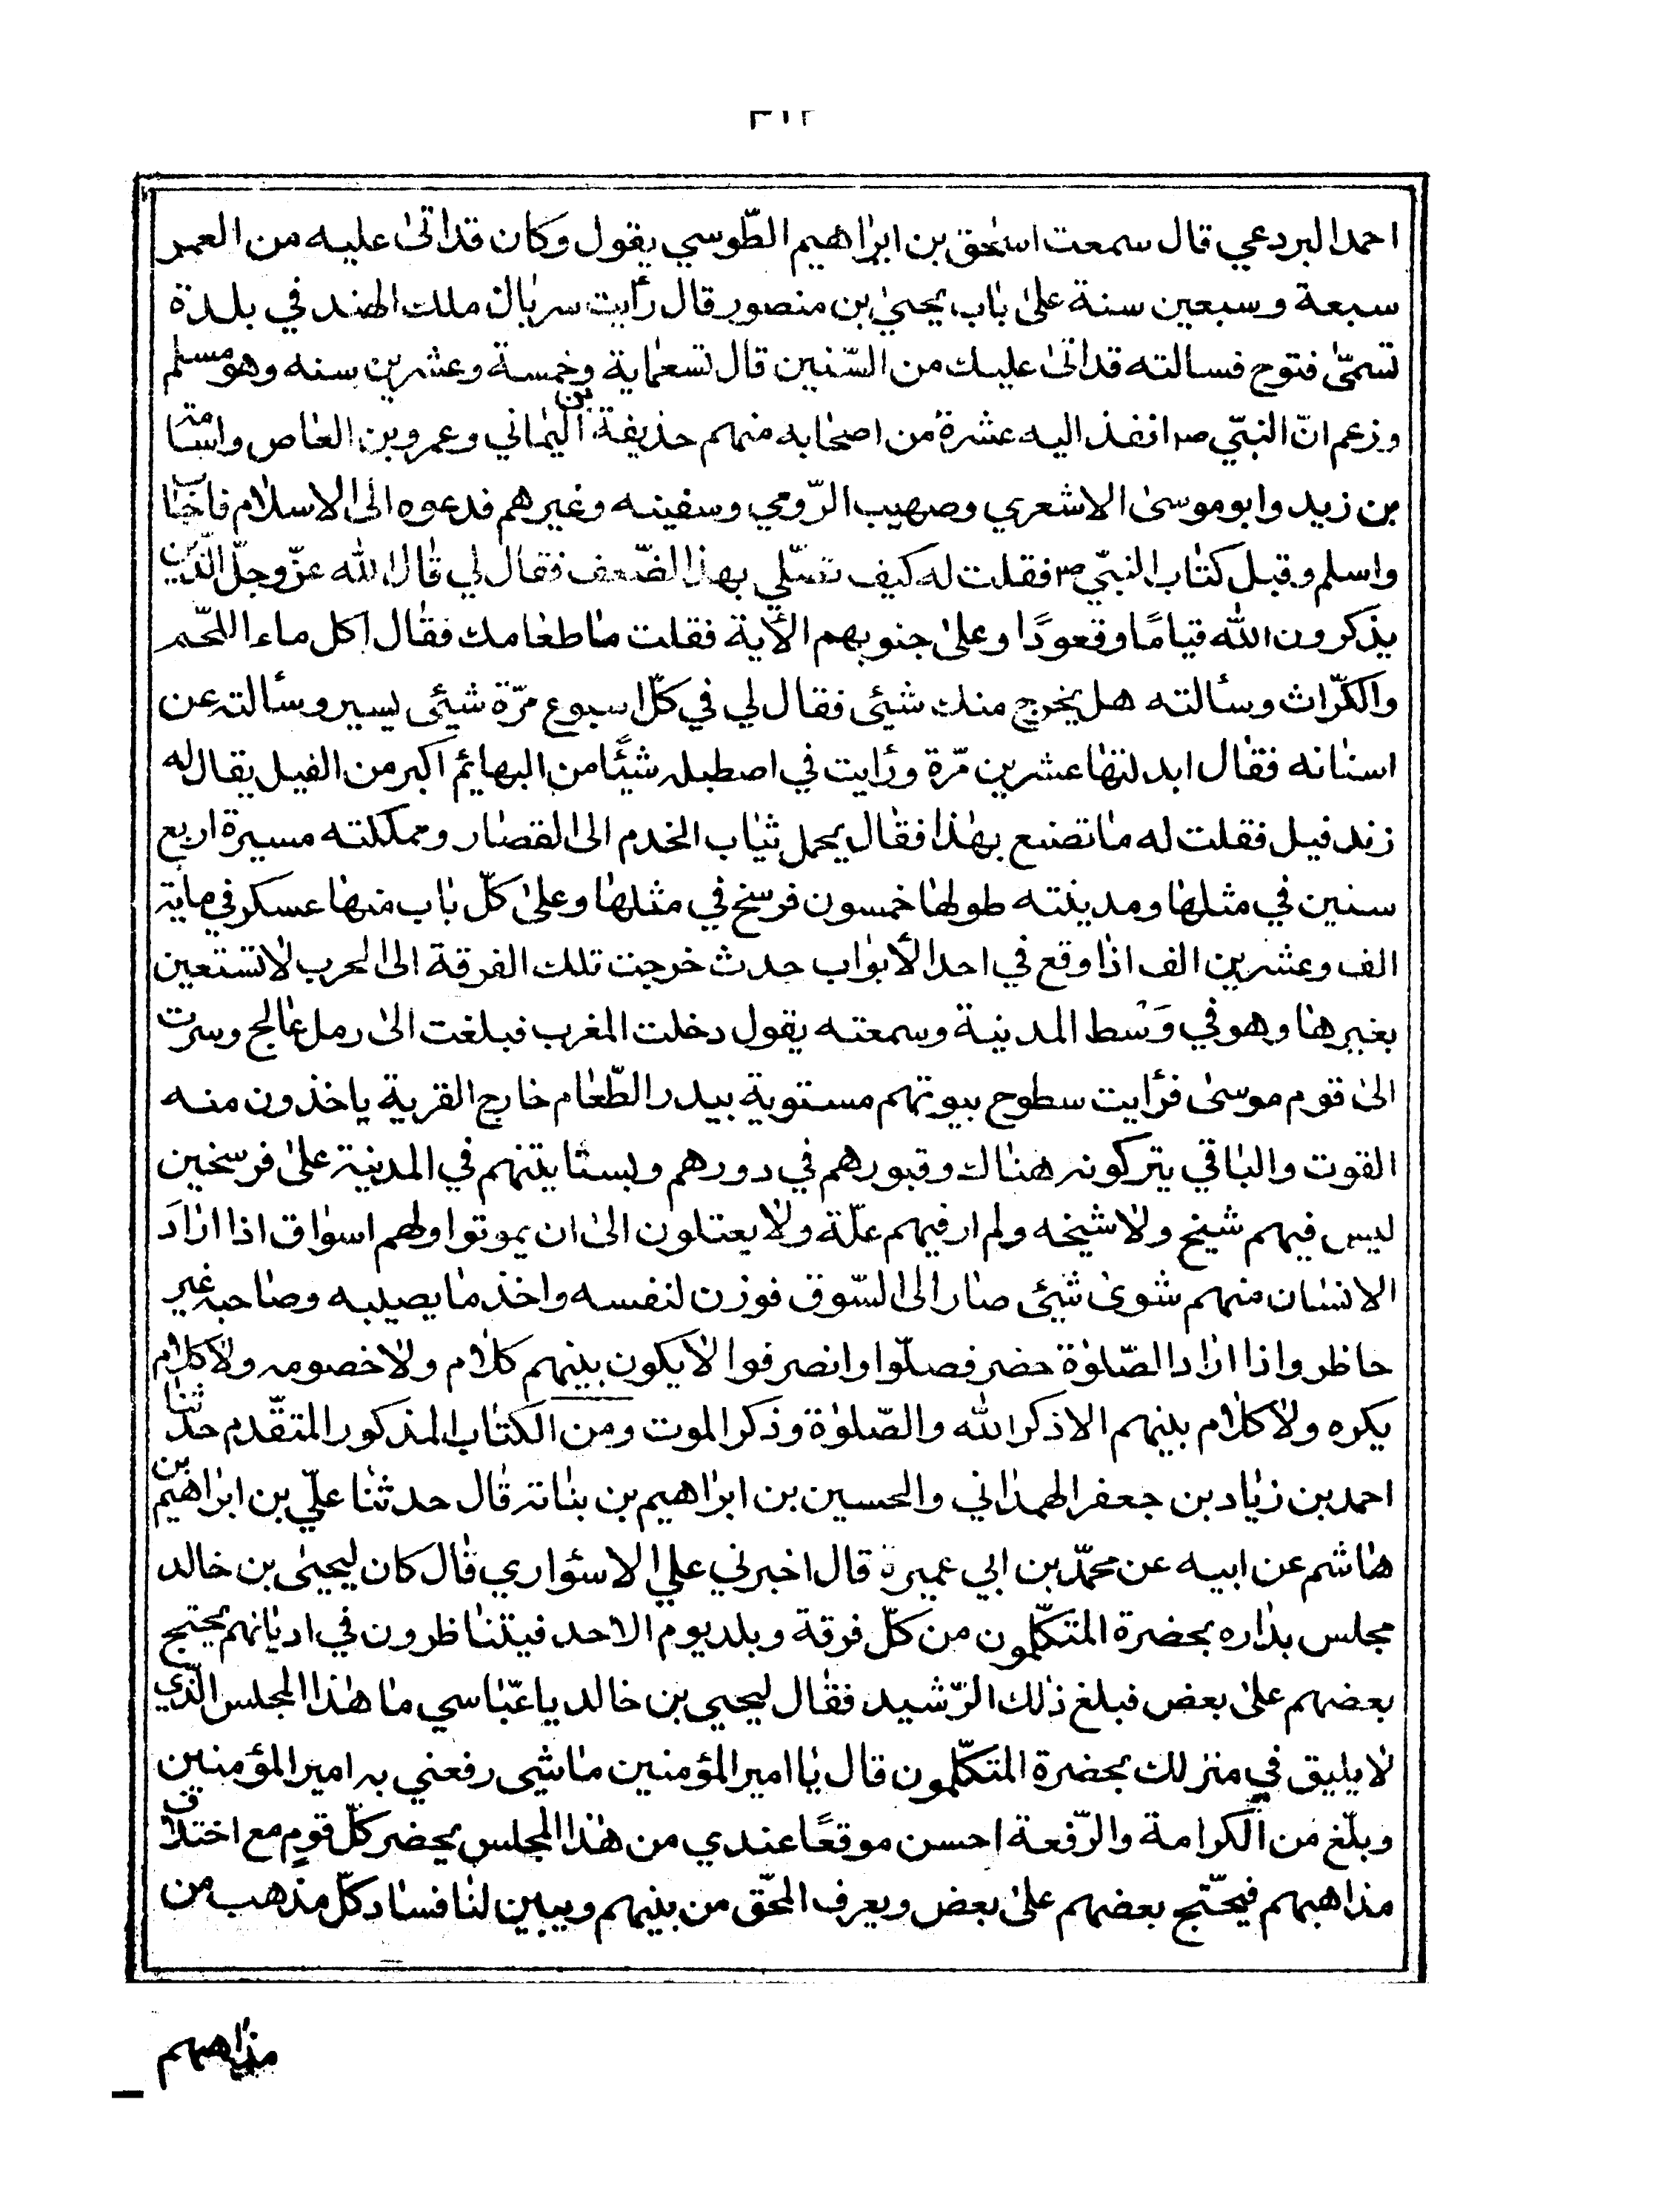 احمد البردعي قال سمعت اسحٰق بن ابراهيم الطّوسي يقول وكان قد اتىٰ عليه من العمر
سبعة وسبعين سنة علىٰ باب يحيىٰ بن منصور قال رأيت سربانك ملك الهند في بلدة
تسمّىٰ فتوح فسالته قد اتىٰ عليك من السّنين قال تسعماية وخمسة وعشرين سنه وهو مسلم
وزعم انّ النبيّ ص انفذ اليه عشرة من اصحابه منهم حذيفة بن اليماني وعمرو بن العاص واسامة
بن زيد وابو موسىٰ الاشعري وصهيب الرّومي وسفينه وغيرهم فدعوه الىٰ الاسلام فاجاب
واسلم وقبل كتاب النبيّ ص فقلت له كيف تصلّي بهذا الضّعف فقال لي قال الله عزّ وجلّ الّذين
يذكرون الله قيامًا وقعودًا وعلىٰ جنوبهم الأية فقلت ما طعامك فقال اكل ماء اللّحم
والكرّاث وسألته هل يخرج منك شيئى فقال لي في كلّ اسبوع مرّة شيئى يسير وسألته عن
اسنانه فقال ابدلتها عشرين مرّة ورأيت في اصطبله شيئًا من البهائم اكبر من الفيل يقال له
زند فيل فقلت له ما تصنع بهٰذا فقال يحمل ثياب الخدم الىٰ القصار ومملكته مسيرة اربع
سنين في مثلها ومدينته طولها خمسون فرسخ في مثلها وعلىٰ كلّ باب منها عسكر في مأية
الف وعشرين الف اذا وقع في احد الأبواب حدث خرجت تلك الفرقة الىٰ الحرب لا تستعين
بغيرها وهو في وَسْط المدينة وسمعته يقول دخلت المغرب فبلغت الىٰ رمل عالج وسرت
الىٰ قوم موسىٰ فرأيت سطوح بيوتهم مستوية بيدر الطّعام خارج القرية ياخذون منه
القوت والباقي يتركونه هناك وقبورهم في دورهم وبساتينهم في المدينة علىٰ فرسخين
ليس فيهم شيخ ولا شيخه ولم ار فيهم علّة ولا يعتلون الىٰ ان يموتوا ولهم اسواق اذا ارادَ
الانسان منهم شوى شيئى صار الىٰ السّوق فوزن لنفسه واخذ ما يصيبه وصاحبه غير
حاظر واذا اراد الصّلوٰة حضر فصلّوا وانصرفوا لا يكون بينهم كلام ولا خصومه ولا كلام
يكره ولا كلام بينهم الا ذكر الله والصّلوٰة وذكر الموت ومن الكتاب المذكور المتقّدم حدثنا
احمد بن زياد بن جعفر الهمذاني والحسين بن ابراهيم بن بناته قال حدثنا عليّ بن ابراهيم بن
هاشم عن ابيه عن محمّد بن ابي عميرة قال اخبرني علي الاسئواري قال كان ليحيىٰ بن خالد
مجلس بداره بحضرة المتكلّمون من كلّ فرقة وبلد يوم الاحد فيتناظرون في اديانهم يحتج
بعضهم علىٰ بعض فبلغ ذٰلك الرّشيد فقال ليحيي بن خالد يا عبّاسي ما هٰذا المجلس الّذي
لا يليق في منزلك بحضرة المتكلّمون قال يا امير المؤمنين ما شى رفعني به امير المؤمنين
وبلّغ من الكرامة والرّفعة احسن موقعًا عندي من هٰذا المجلس يحضر كلّ قومٍ مع اختلاف
مذاهبهم فيحّتج بعضهم علىٰ بعض ويعرف المحّق من بينهم ويبين لنا فساد كلّ مذهب من
مذاهبهم